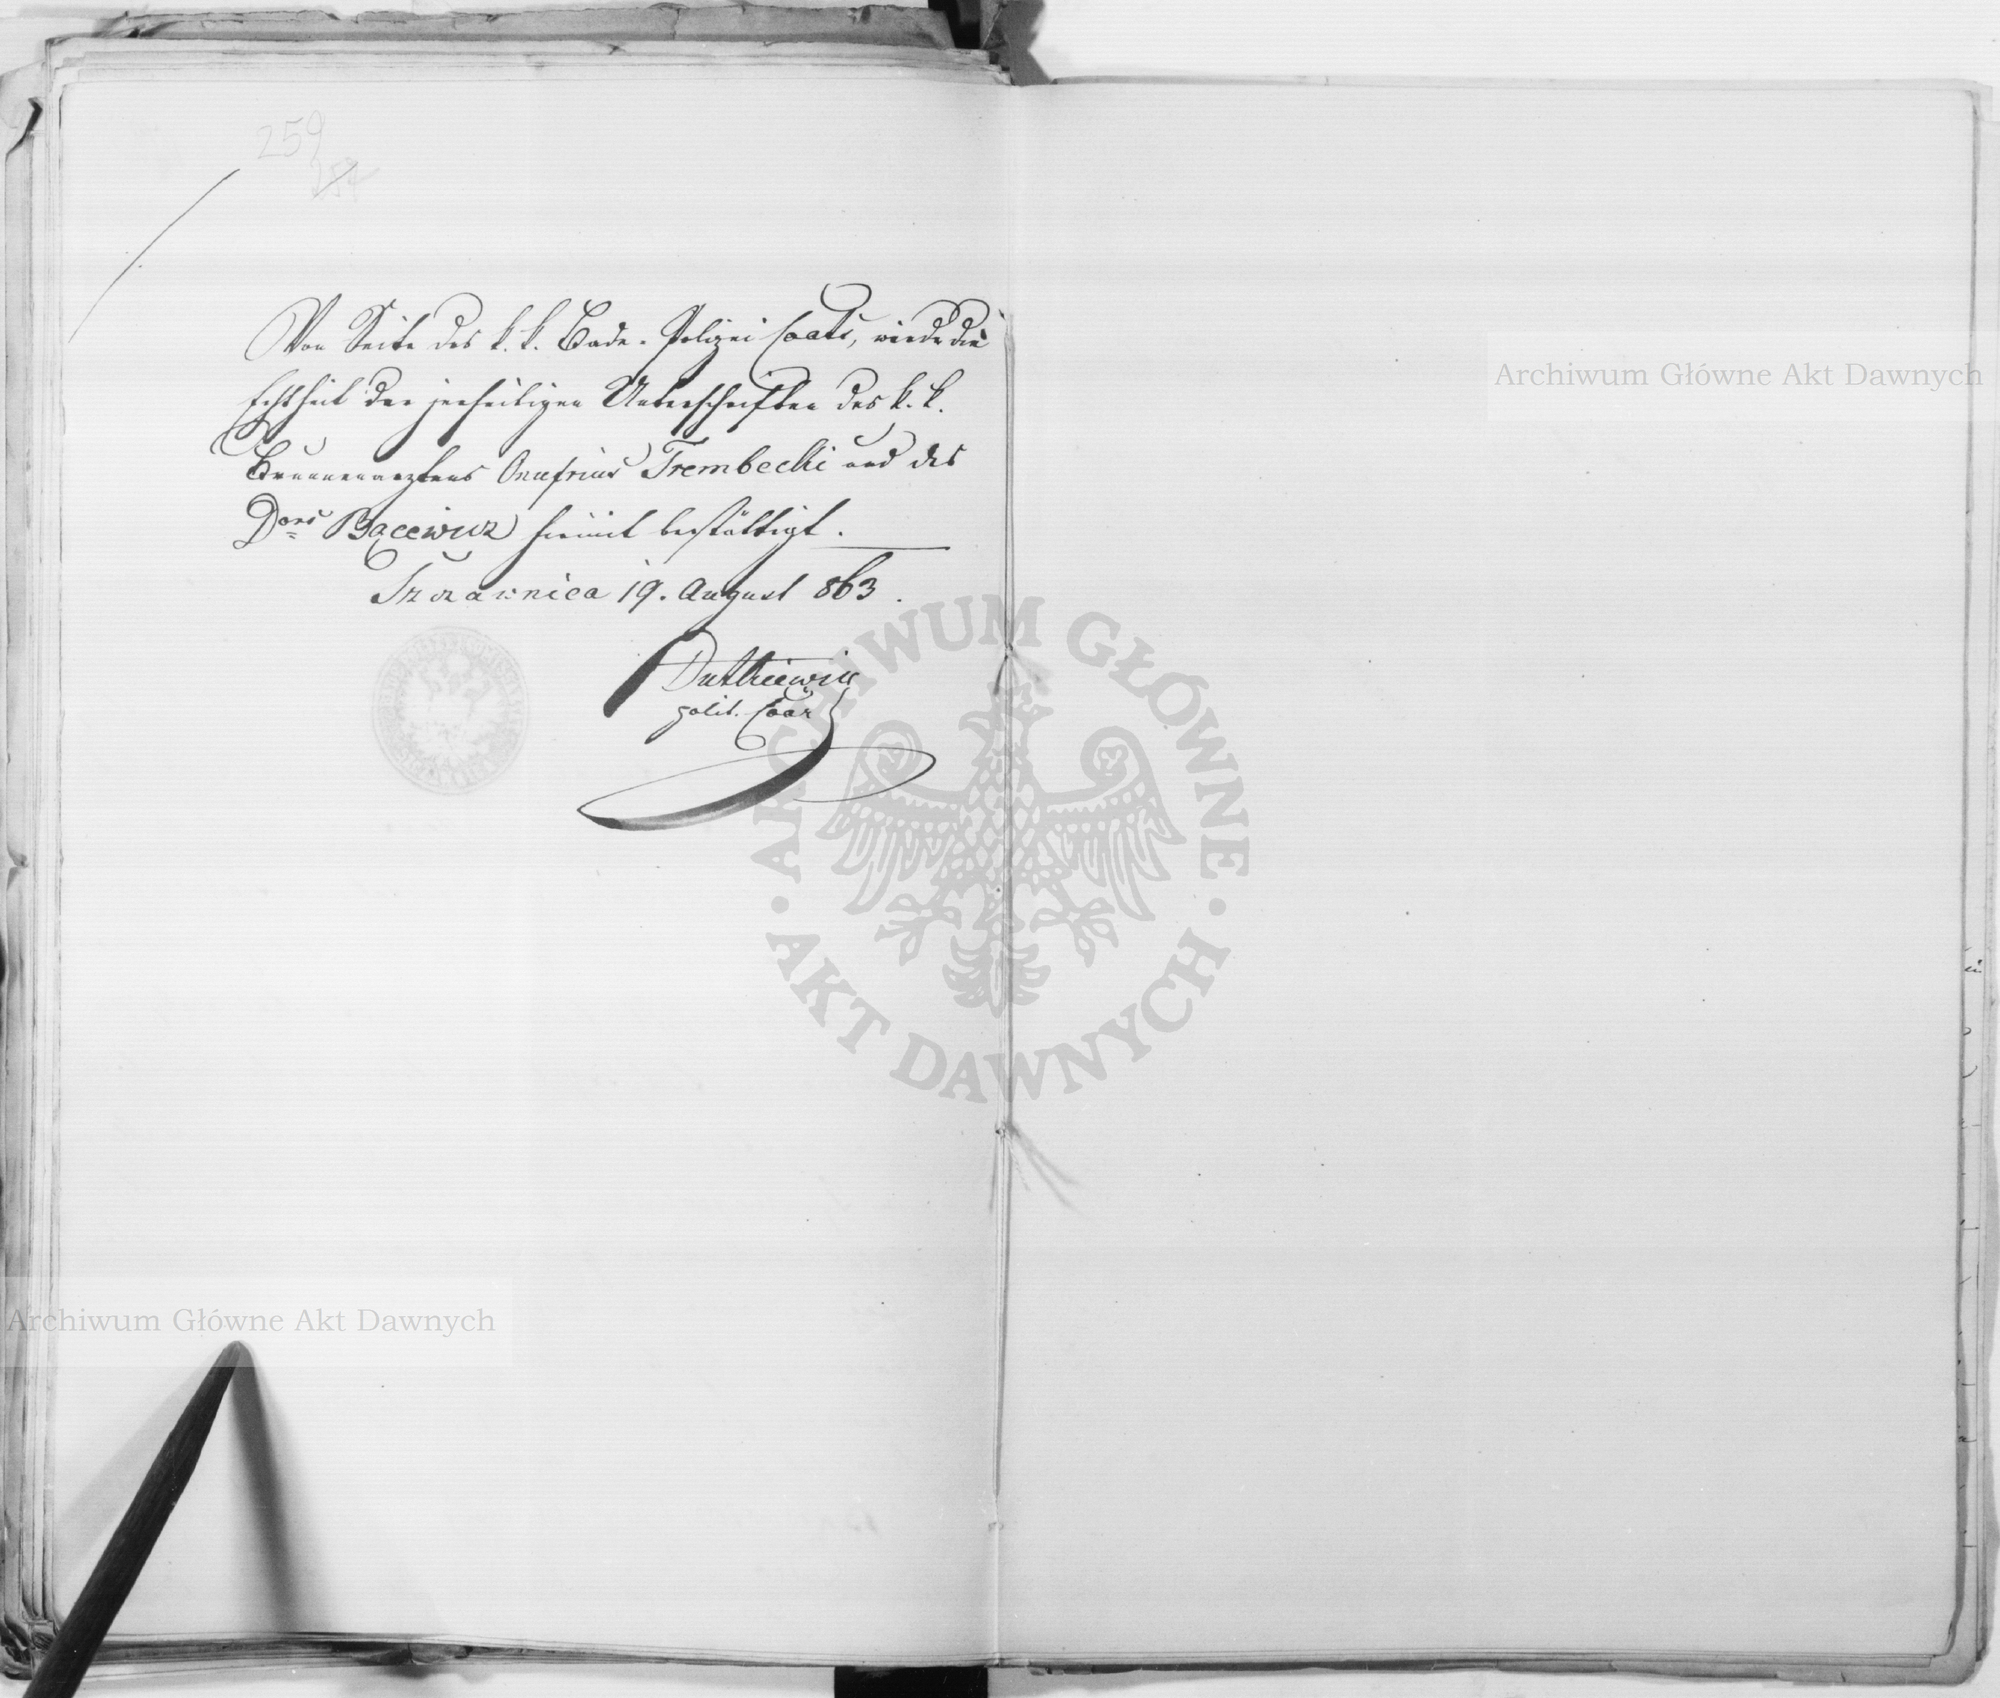 259
254
Von Seite des k. k. Bade-Polizei Coats, wird die
Echtheit der jenseitigen Unterschriften des k. k.
Brunnenarztens Onufrius Trembecki und des
Dors Bącewicz hiemit bestättigt.
Szczawnica 19. August 863.
Dutkiewicz
polit. Coär
Archiwum Główne Akt Dawnych
ARCHIWUM GŁÓWNE
AKT DAWNYCH
Archiwum Główne Akt Dawnych